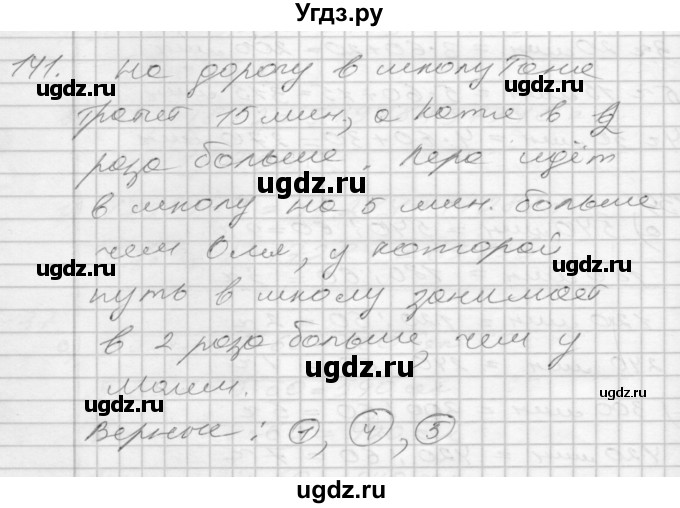 Угдз.ру
141. На дорогу в школу Таня
тратит 15 мин, а Катя в 2
раза больше. Кера идёт
в школу на 5 мин. больше
чем Оля, у которой
путь в школу занимает
в 2 раза больше, чем у
Маши.
Верные: 1, 4, 5
ugdz.ru
ugdz.ru
ugdz.ru
ugdz.ru
ugdz.ru
ugdz.ru
ugdz.ru
ugdz.ru
ugdz.ru
ugdz.ru